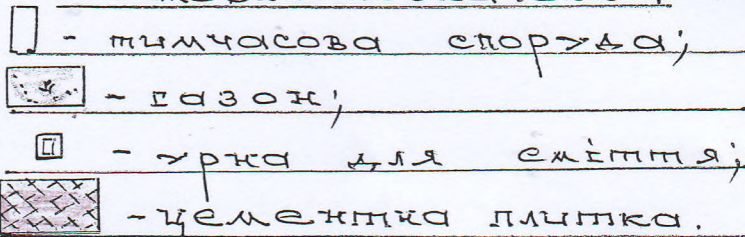 - тимчасова споруда;
- газон;
- урна для сміття;
- цементна плитка.